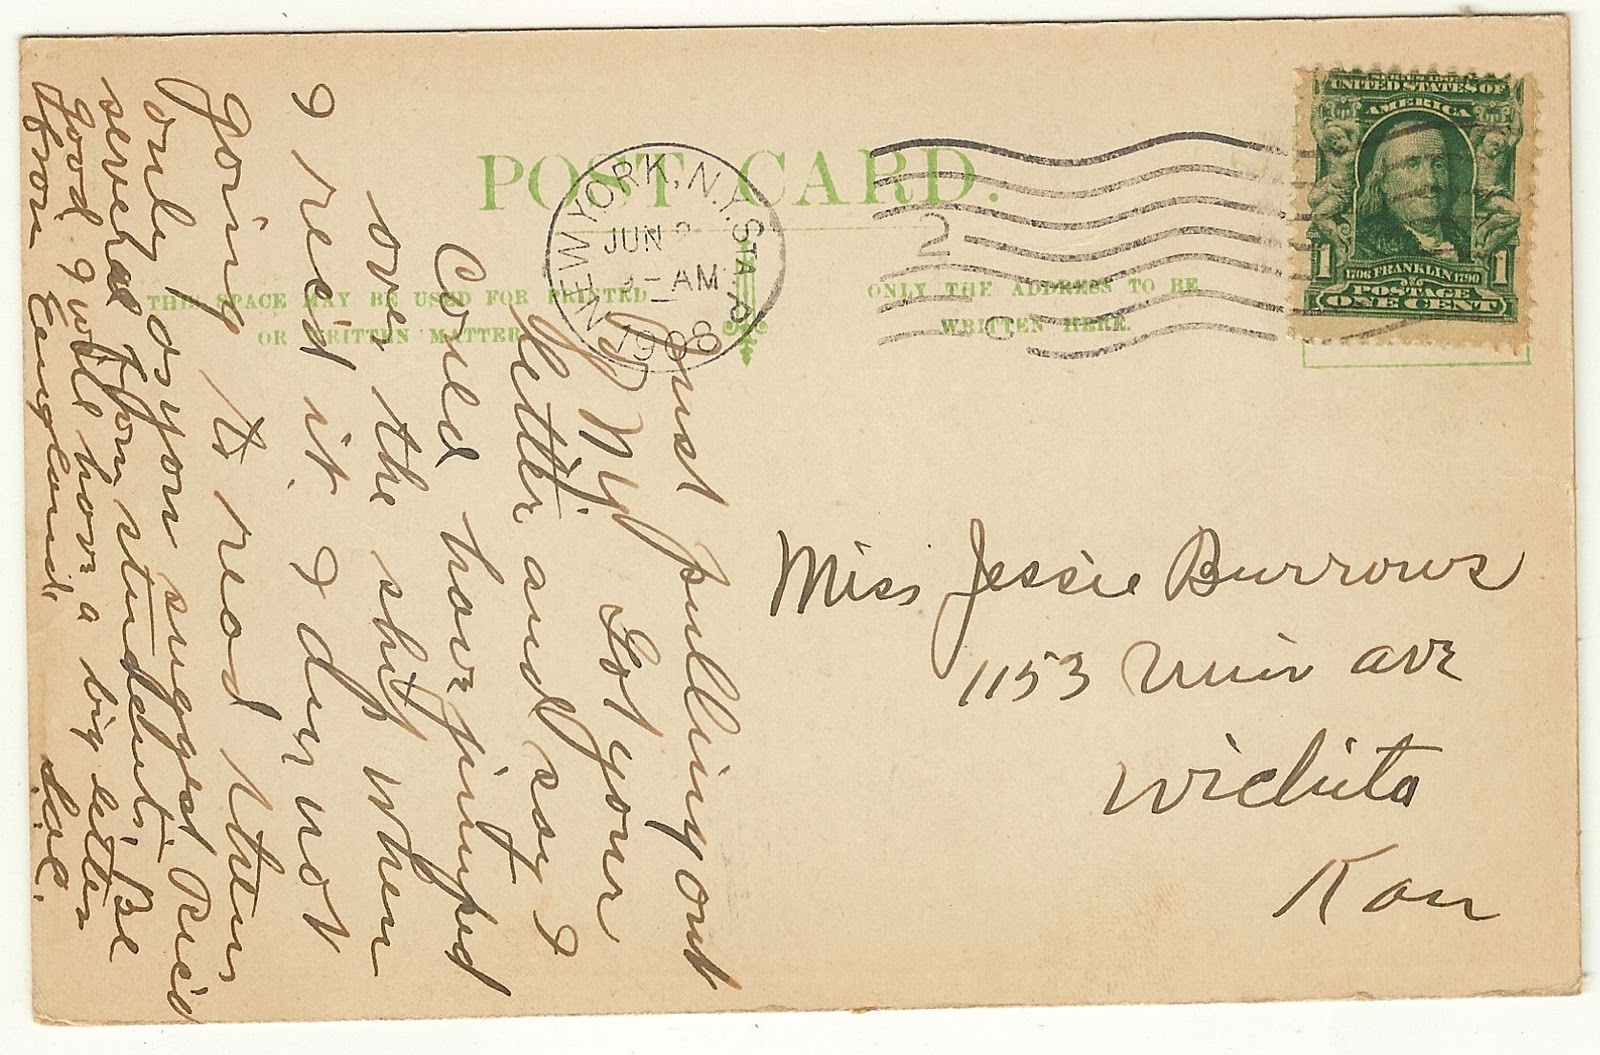 POST CARD.
NEW YORK, N.Y. STA. P
JUN
AM
1908
2
UNITED STATES OF
AMERICA
1 1706 FRANKLIN 1790 1
POSTAGE
ONE CENT
THIS SPACE MAY BE USED FOR PRINTED
OR WRITTEN MATTER
ONLY THE ADDRESS TO BE
WRITTEN HERE.
Just pulling out
of NY. Got your
letter and say I
Could have jumped
over the ship when
I rec'd it. I dus not
going to read them
only as you suggest Rec'd
several from students. Be
good I will have a big letter
from England. Sol.
Miss Jessie Burrows
1153 Ave
Wichita
Kan